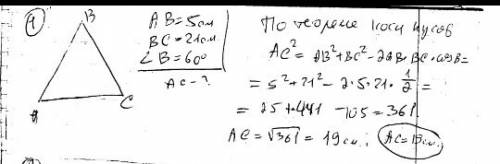 4
B
A
C
AB = 5см
BC = 21см
∠B = 60°
AC - ?
По теореме косинусов
AC² = AB² + BC² - 2AB·BC·cosB =
= 5² + 21² - 2·5·21·1/2 =
= 25 + 441 - 105 = 361
AC = √361 = 19 см; AC = 19 см.